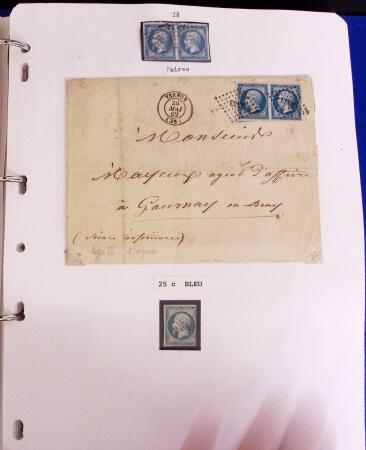 18
Paires
VERNON
28
MAI
62
(26)
Monsieur
Mayeux agent d'affaire
à Gournay en Bray
(Seine inférieure)
type II
25 c BLEU